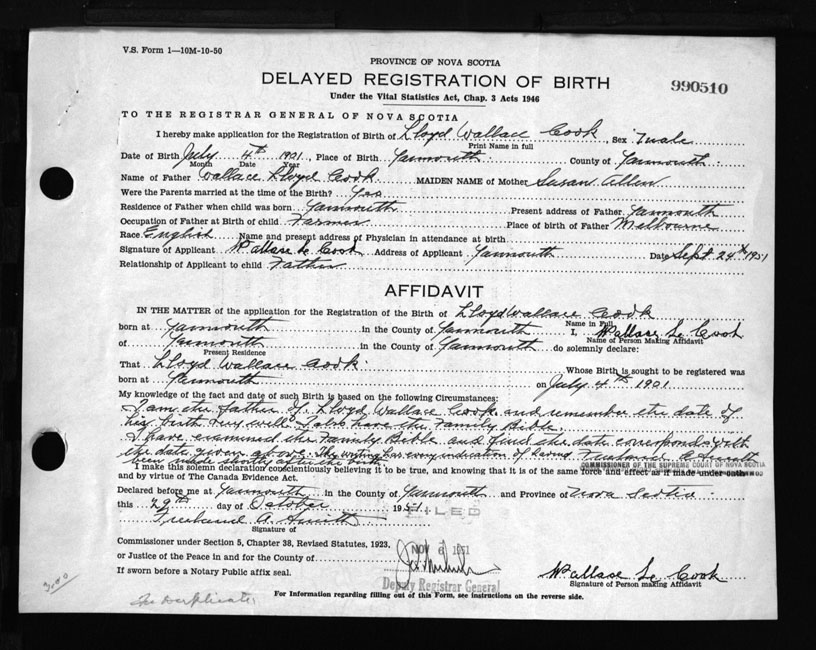 V.S. Form 1—10M-10-50
PROVINCE OF NOVA SCOTIA
DELAYED REGISTRATION OF BIRTH
990510
Under the Vital Statistics Act, Chap. 3 Acts 1946
TO THE REGISTRAR GENERAL OF NOVA SCOTIA
I hereby make application for the Registration of Birth of Lloyd Wallace Cook, Sex Male
Print Name in full
Date of Birth July 4th 1901, Place of Birth Yarmouth County of Yarmouth
Month Date Year
Name of Father Wallace Lloyd Cook MAIDEN NAME of Mother Susan Allen
Were the Parents married at the time of the Birth? Yes
Residence of Father when child was born Yarmouth Present address of Father Yarmouth
Occupation of Father at Birth of child Farmer Place of birth of Father Melbourne
Race English Name and present address of Physician in attendance at birth
Signature of Applicant Wallace L. Cook Address of Applicant Yarmouth Date Sept 24th 1951
Relationship of Applicant to child Father
AFFIDAVIT
IN THE MATTER of the application for the Registration of the Birth of Lloyd Wallace Cook
Name in Full
born at Yarmouth in the County of Yarmouth I, Wallace L. Cook
Name of Person Making Affidavit
of Yarmouth in the County of Yarmouth do solemnly declare:
Present Residence
That Lloyd Wallace Cook Whose Birth is sought to be registered was
born at Yarmouth on July 4th 1901
My knowledge of the fact and date of such Birth is based on the following Circumstances:
I am the father of Lloyd Wallace Cook and remember the date of
his birth very well. I also have the Family Bible.
I have examined the Family Bible and find the date corresponds with
the date given above. The writing has every indication of having
been made shortly after the birth. Freeland A. Smith
COMMISSIONER OF THE SUPREME COURT OF NOVA SCOTIA
I make this solemn declaration conscientiously believing it to be true, and knowing that it is of the same force and effect as if made under oath
and by virtue of The Canada Evidence Act.
Declared before me at Yarmouth in the County of Yarmouth and Province of Nova Scotia
this 29th day of October 1951
FILED
Freeland A. Smith
Signature of
Commissioner under Section 5, Chapter 38, Revised Statutes, 1923,
NOV 6 1951
or Justice of the Peace in and for the County of
If sworn before a Notary Public affix seal.
Wallace L. Cook
Signature of Person making Affidavit
Deputy Registrar General
For Information regarding filling out of this Form, see instructions on the reverse side.
In Duplicate